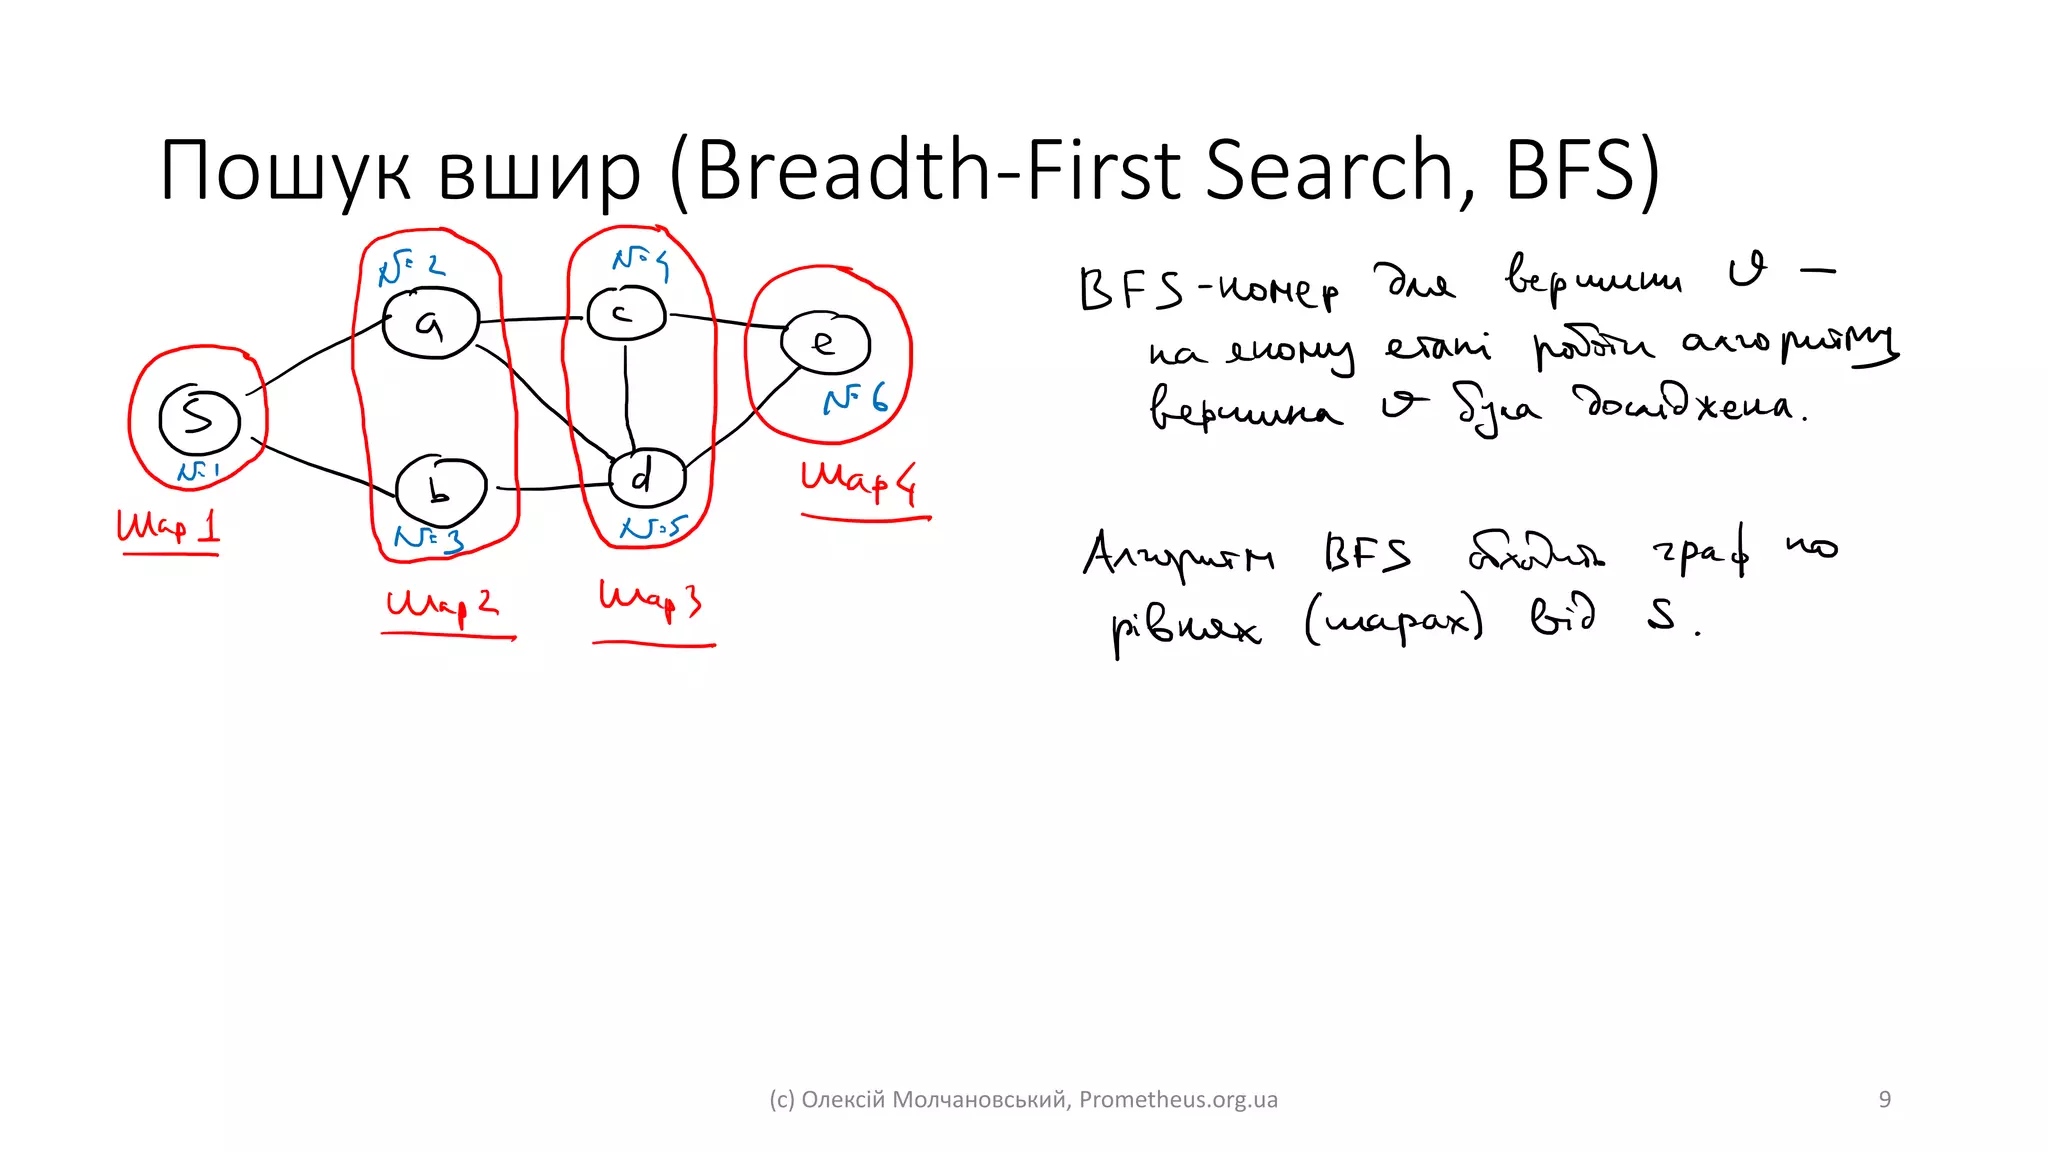 Пошук вшир (Breadth-First Search, BFS)
№ 2
a
№ 4
c
e
№ 6
S
№ 1
b
№ 3
d
№ 5
Шар 1
Шар 2
Шар 3
Шар 4
BFS-номер для вершини v –
на якому етапі роботи алгоритму
вершина v була досліджена.
Алгоритм BFS обходить граф по
рівнях (шарах) від S.
(c) Олексій Молчановський, Prometheus.org.ua
9